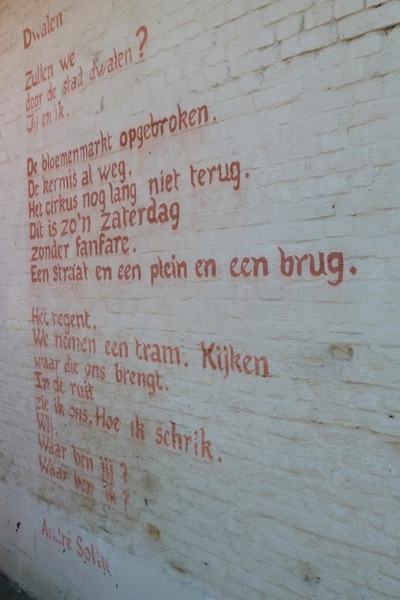 Dwalen
Zullen we
door de stad dwalen?
Jij en ik.
De bloemenmarkt opgebroken.
De kermis al weg.
Het cirkus nog lang niet terug.
Dit is zo'n zaterdag
zonder fanfare.
Een straat en een plein en een brug.
Het regent.
We nemen een tram. Kijken
waar die ons brengt.
In de ruit
zie ik ons. Hoe ik schrik.
Wij.
Waar ben jij?
Waar ben ik?
André Sollie